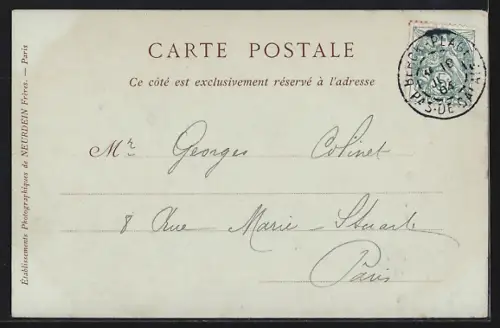 CARTE POSTALE
Ce côté est exclusivement réservé à l'adresse
Mr Georges Colinet
8 Rue Marie-Stuart
Paris
Établissements Photographiques de NEURDEIN Frères. — Paris
BERCK-PLAGE
PAS-DE-CALAIS
04